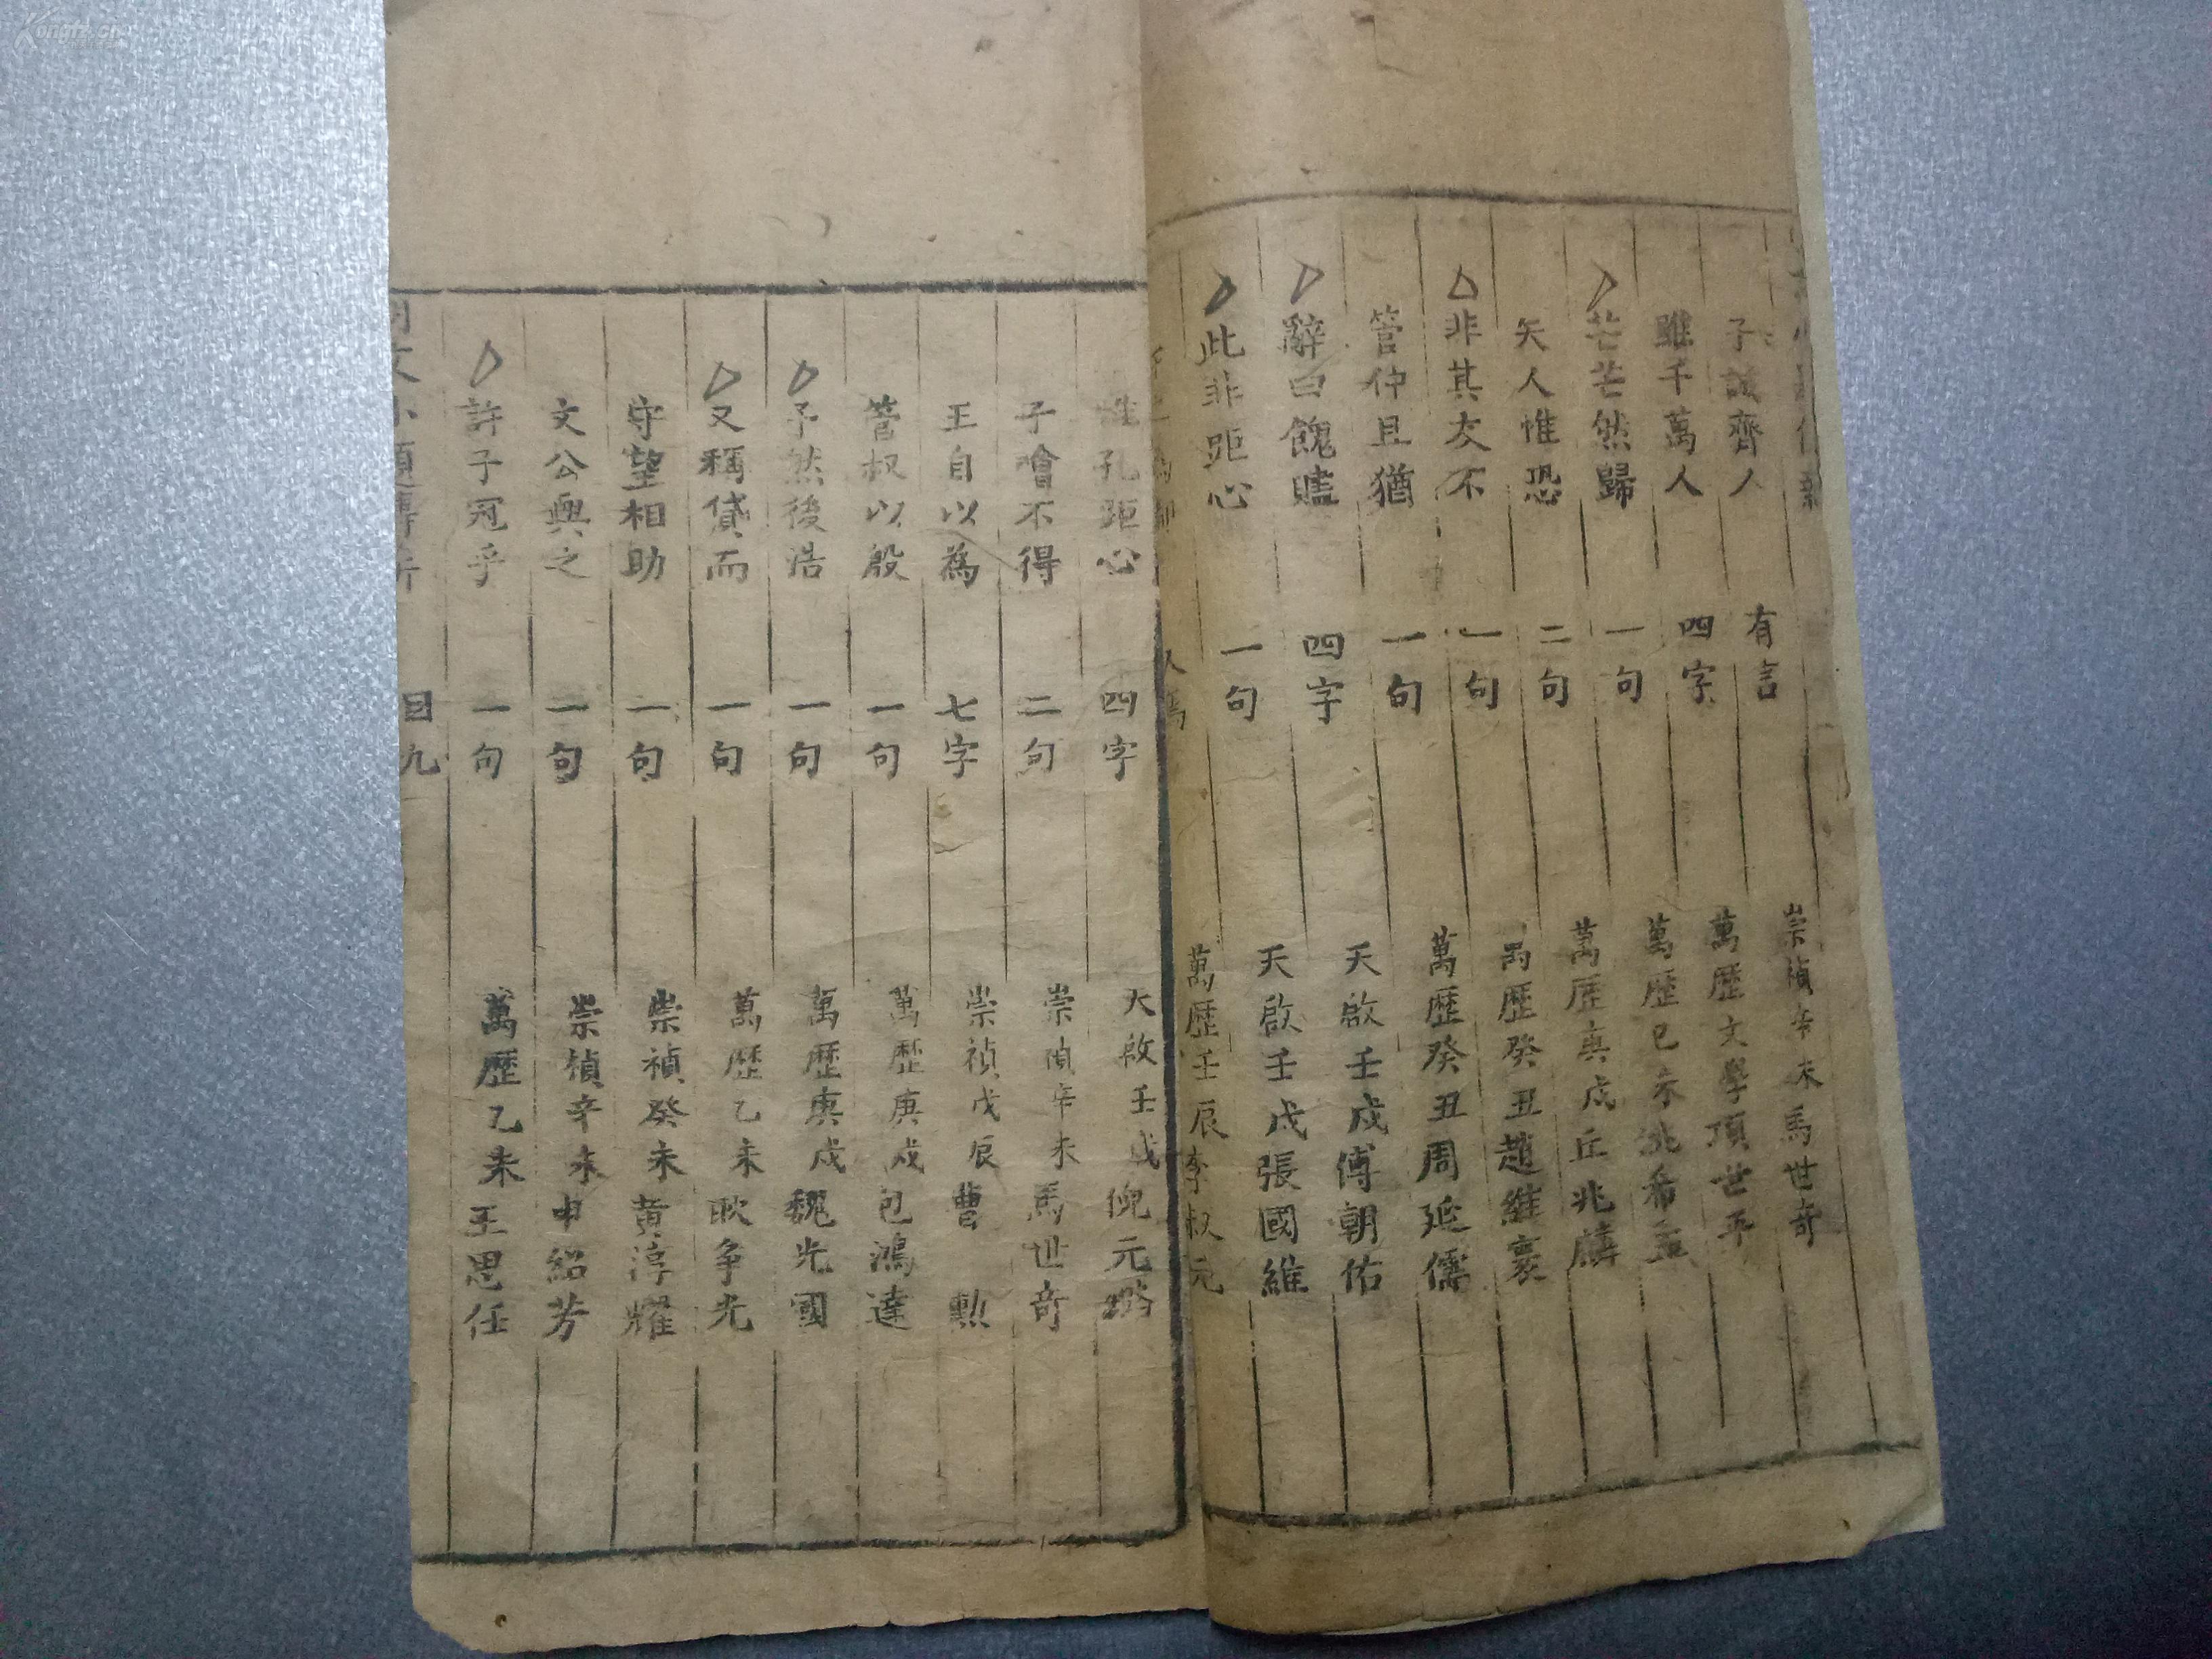 子誠齊人 有言 崇禎辛未馬世奇
雖千萬人 四字 萬歷文學項世平
芒芒然歸 一句 萬歷已未姚希孟
矢人惟恐 二句 萬歷庚戍丘兆麟
非其友不 一句 萬歷癸丑趙維寰
管仲且猶 一句 萬歷癸丑周延儒
辭曰餽贐 四字 天啟壬戍傅朝佑
此非距心 一句 天啟壬戍張國維
萬歷壬辰李叔元
惟孔距心 四字 天啟壬戍倪元璐
子噲不得 二句 崇禎辛未馬世奇
王自以為 七字 崇禎戊辰曹勲
管叔以殷 一句 萬歷庚戍包鴻逵
予然後浩 一句 萬歷庚戍魏光國
又稱貸而 一句 萬歷乙未耿争光
守望相助 一句 崇禎癸未黄淳耀
文公與之 一句 崇禎辛未申紹芳
許子冠乎 一句 萬歷乙未王思任
目九